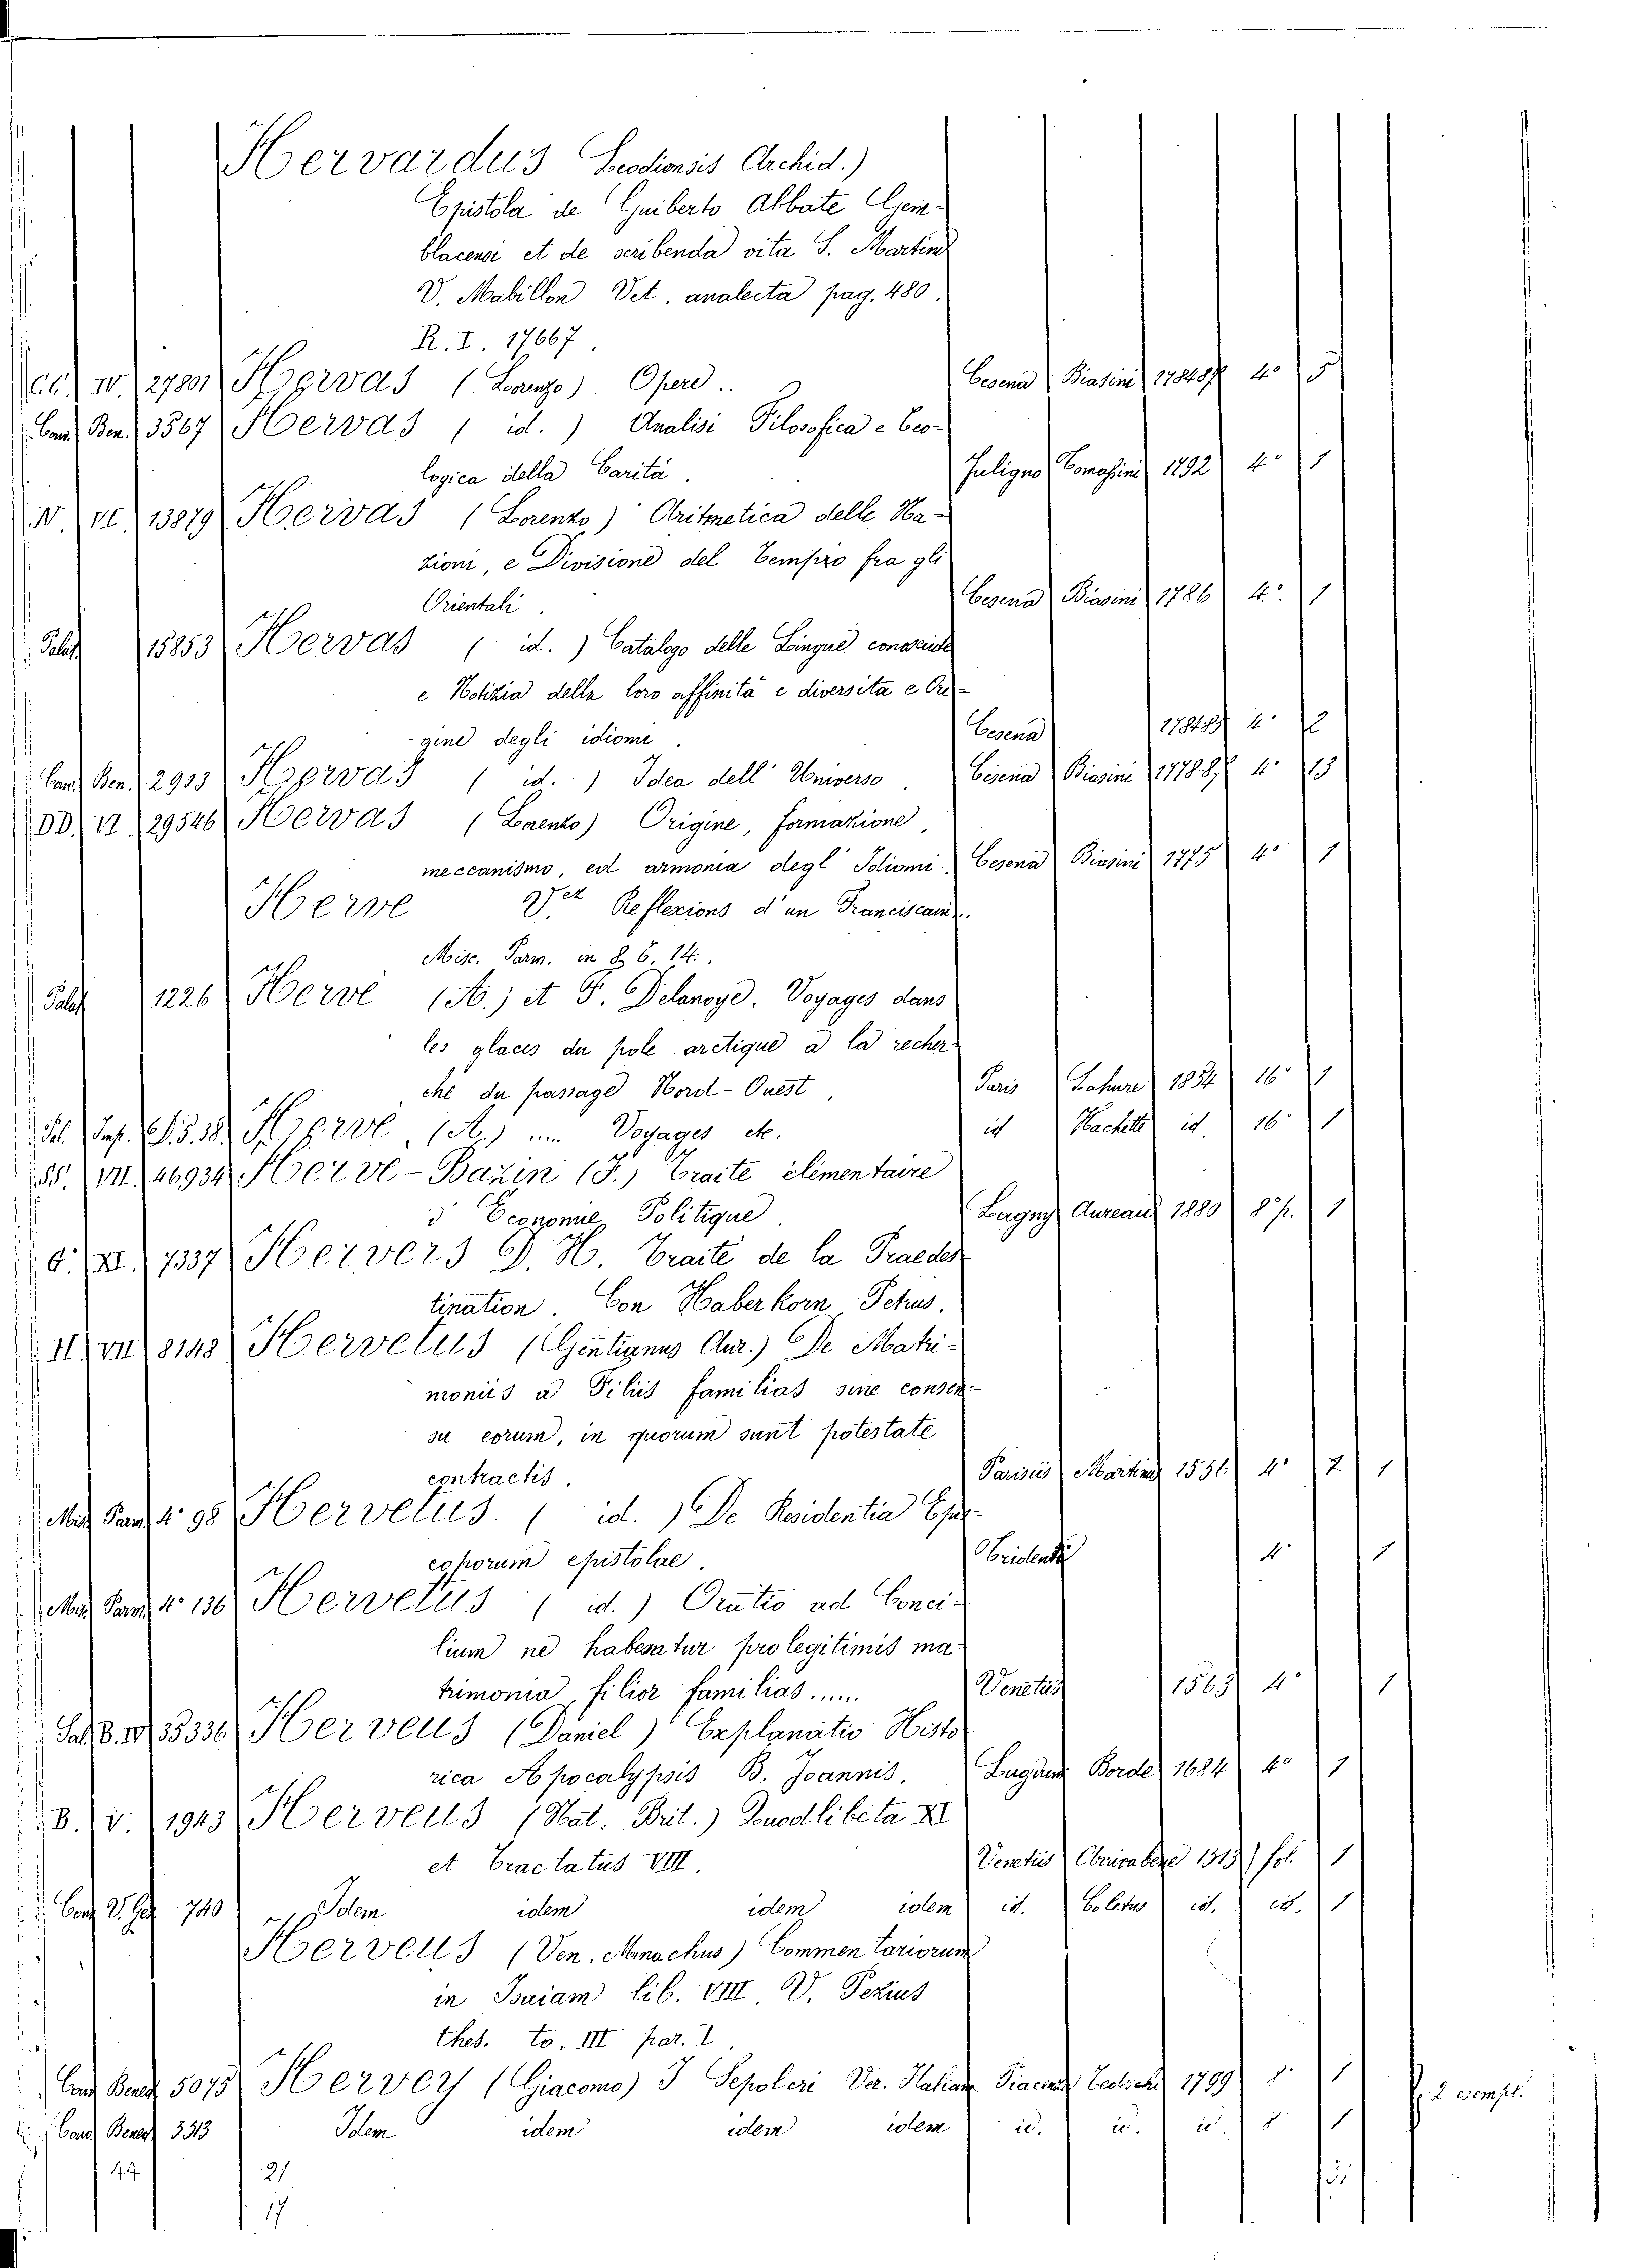 Hervardus Leodiensis Archid.)
Epistola de Guiberto Abbate Gem-
blacensi et de scribenda vita S. Martini
V. Mabillon Vet. analecta pag. 480.
R. I. 17667.
IV. 27801 Hervas (Lorenzo) Opere.. Cesena Biasini 4º 5
Cons. Ben. 3567 Hervas ( id. ) Analisi Filosofica e Teo-
logica della Carità. Fuligno Tomasini 1792 4º 1
N VI. 13879 Hervas (Lorenzo) Aritmetica delle Na-
zioni, e Divisione del Tempo fra gli
Orientali. Cesena Biasini 1786 4º. 1
Palat. 15853 Hervas ( id. ) Catalogo delle Lingue conosciute
e Notizia della loro affinità e diversità e Ori-
-gine degli idiomi. Cesena 4º 2
Cons. Ben. 2903 Hervas ( id. ) Idea dell' Universo. Cesena Biasini 4º 13
DD. VI. 29546 Hervas (Lorenzo) Origine, formazione,
meccanismo, ed armonia degl' Idiomi. Cesena Biasini 1775 4º 1
Herve Vet Reflexions d'un Franciscain.
Misc. Parm. in 8 6. 14.
Palat. 1226 Hervé (A.) et F. Delanoye. Voyages dans
les glaces du pole arctique à la recher-
che du passage Nord-Ouest. Paris Lahure 1854 16º 1
Hervé (A.) .... Voyages etc. id Hachette id. 16º 1
SS. VII. 46934 Hervé-Bazin (F.) Traité élémentaire
d'Economie Politique Lagny Aureau 1880 8º p. 1
G. XI. 7337 Hervers G. H. Traité de la Praedes-
tination. Con Haberkorn Petrus.
II. VII. 8148 Hervetus (Gentianus Aur.) De Matri-
moniis a Filiis familias sine consen-
su eorum, in quorum sunt potestate
contractis. Parisiis Martinus 1556 4º 1
Misc. Parm. 4º 98 Hervetus. ( id. ) De Residentia Epis-
coporum epistolae. Tridenti 4º 1
Misc. Parm. 4º 136 Hervetus ( id. ) Oratio ad Conci-
lium ne habeantur pro legitimis ma-
trimonia, filior familias..... Venetiis 1563 4º 1
35336 Herveus (Daniel) Explanatio Histo-
rica Apocalypsis B. Joannis. Lugduni Borde 1684 4º 1
B. V. 1943 Herveus (Nat. Brit.) Quodlibeta XI
et Tractatus VIII. Venetiis 1513 fol. 1
740 Idem idem idem idem id. id. id. 1
Herveus (Ven. Monachus) Commentariorum
in Isaiam lib. VIII. V. Pezius
thes. to. III par. I.
Cons. Bened. 5075 Hervey (Giacomo) I Sepolcri Ver. Italiana 1799 8º 1 2 esempl.
Cons. Bened. 5313 Idem idem idem idem id. id. id. 8º 1
44 21
17